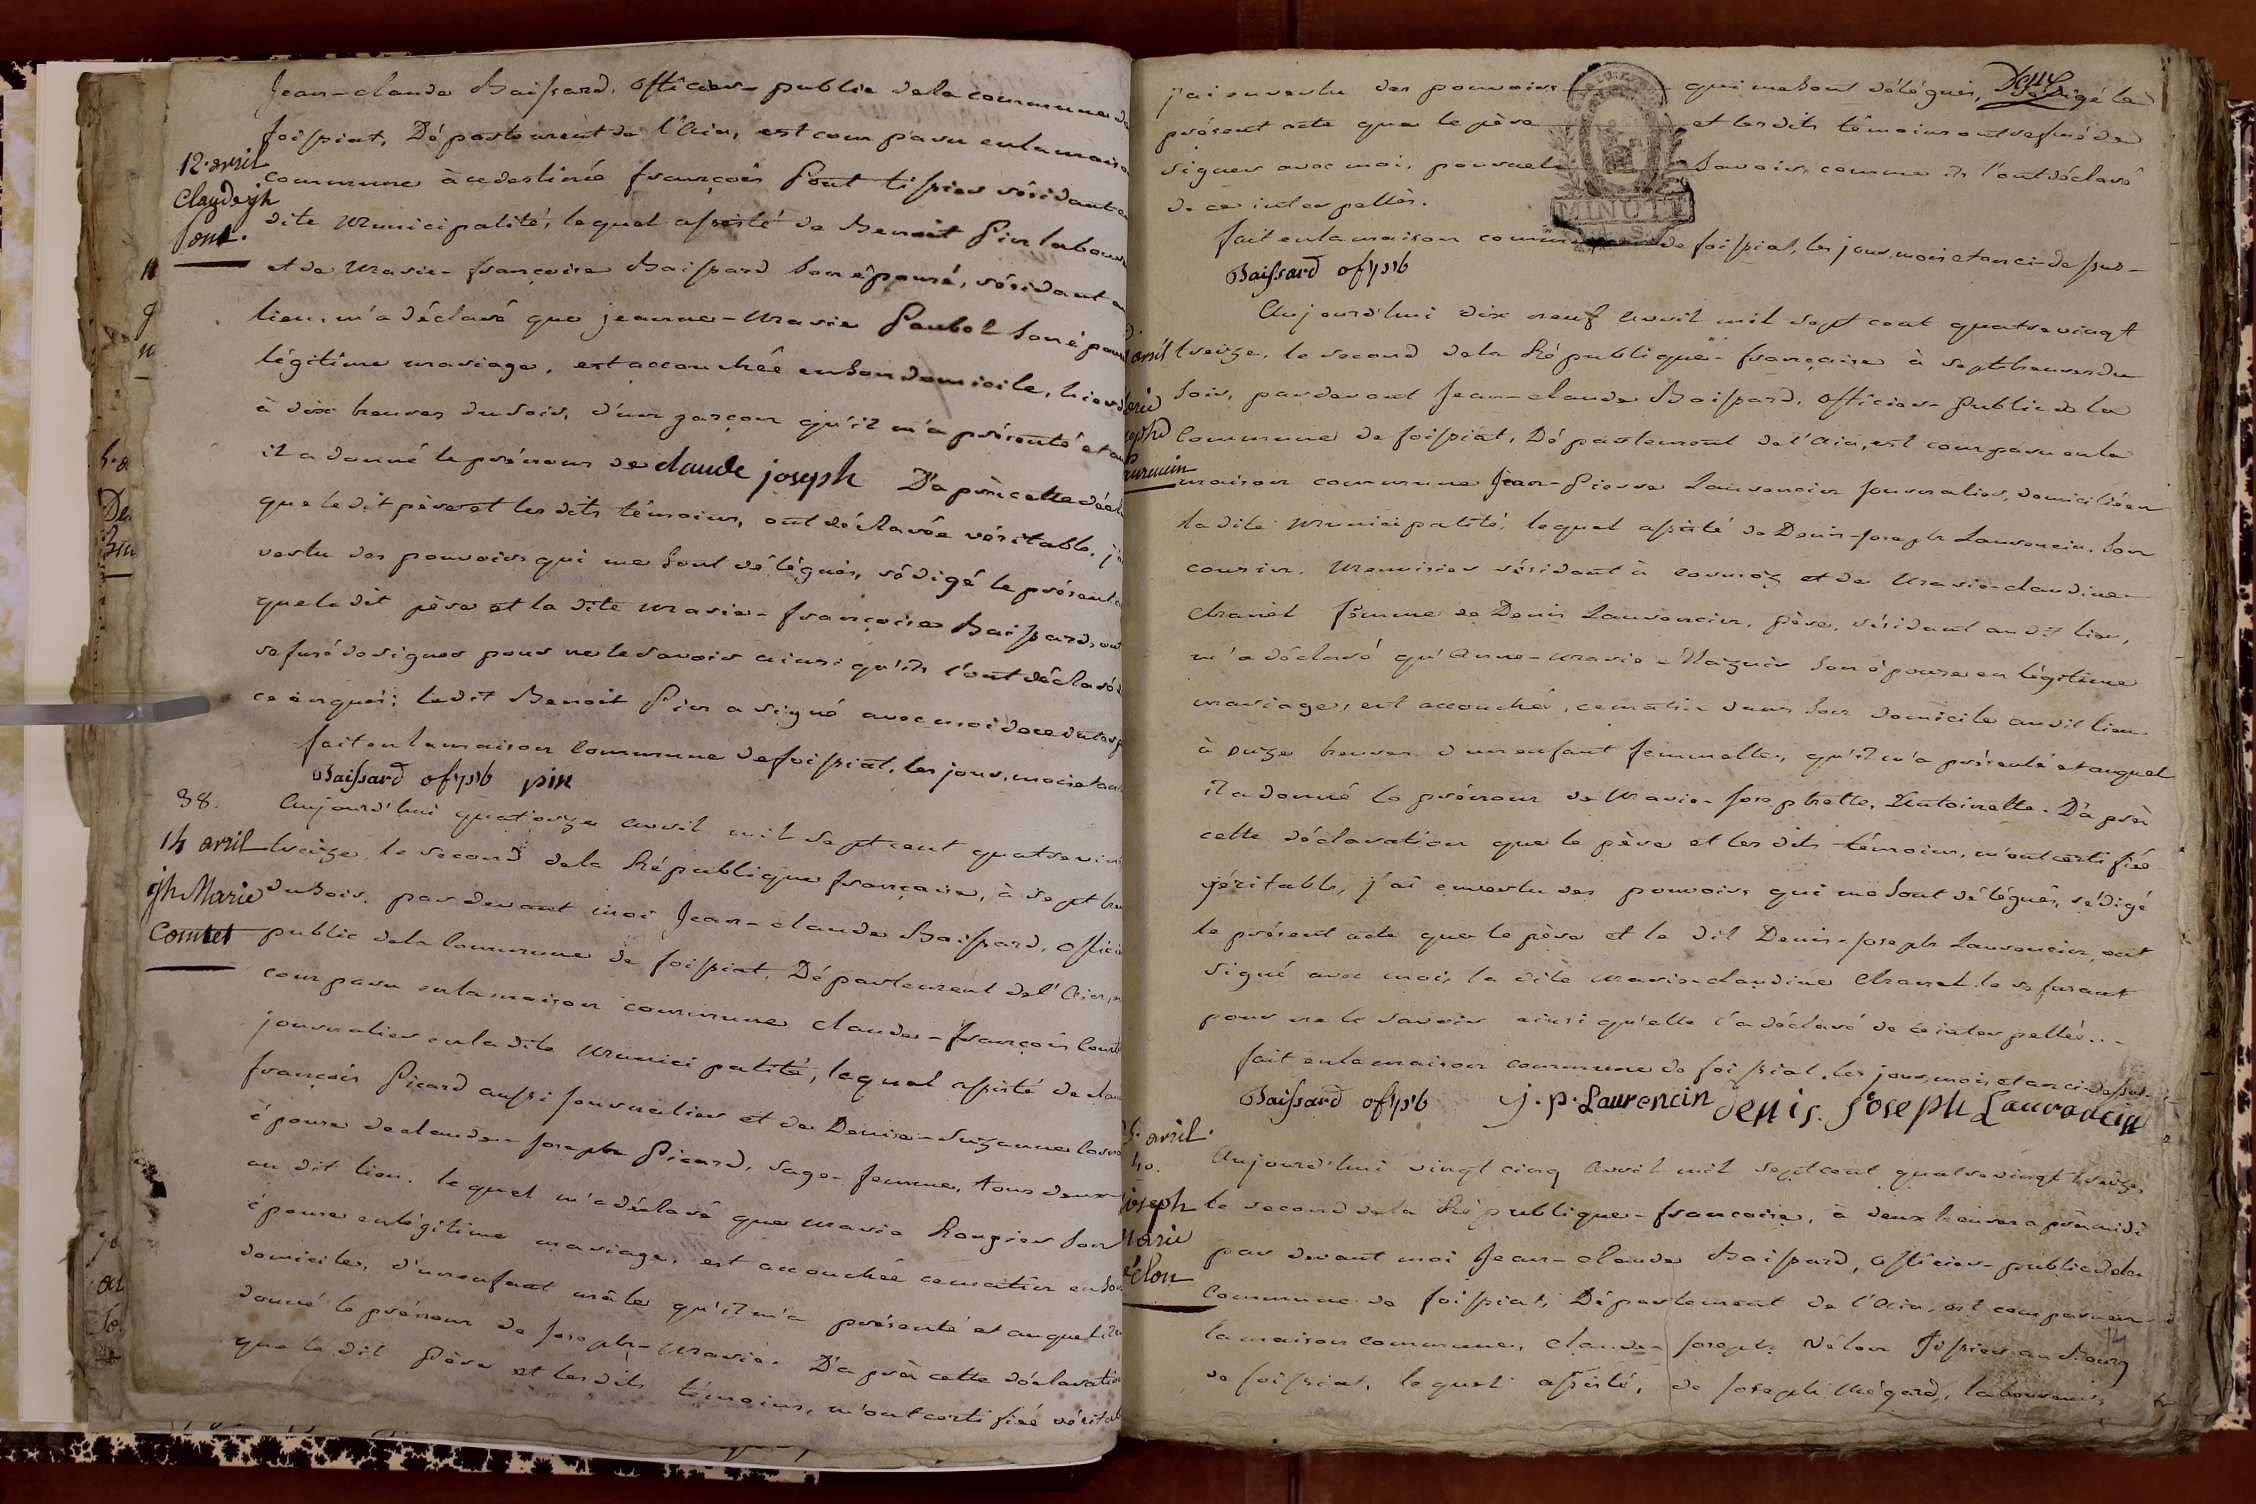 Jean-claude Baissard, officier public de la commune de
foissiat, Département de l'Ain, est comparu en la maison
12. avril
Claude jh
Pont.
commune à ce destinée françois Pont tissier résidant en
dite municipalité, lequel assisté de Benoit Pin laboureur
et de Marie-françoise Baissard son épouse, résidant au
lieu, m'a déclaré que jeanne-Marie son épouse
légitime mariage, est accouchée en son domicile, hier
à dix heures du soir, d'un garçon qu'il m'a présenté et au
il a donné le prénom de claude joseph D'après cette décla
que le dit père et les dits témoins, ont déclarée véritable, j'ai
vertu des pouvoirs qui me sont délégués, rédigé le présent
que le dit père et la dite Marie-françoise Baissard, ont
refusé de signer pour ne le savoir ainsi qu'ils l'ont déclaré
ce enquis; le dit Benoit Pin a signé avec moi de ce
fait en la maison commune de foissiat, les jour, mois et an
Baissard of. pb pin
38.
14 avril
jh Marie
Comtet
Aujourd'hui quatorze avril mil sept cent quatre vin
treize, le second de la République française, à sept heu
du soir, par devant moi Jean-claude Baissard, offici
public de la commune de foissiat, Département de l'Ain,
comparu en la maison commune claude-françois
journalier en la dite municipalité, lequel assisté de clau
françois Picard aussi journalier et de Denise-Suzanne
épouse de claude-joseph Picard, sage-femme, tous deux
au dit lieu. lequel m'a déclaré que Marie Rougier son
épouse en légitime mariage, est accouchée ce matin en son
domicile, d'un enfant mâle qu'il m'a présenté et auquel il a
donné le prénom de joseph-Marie. D'après cette déclaration
que le dit père et les dits témoins, m'ont certifiée véritab
j'ai en vertu des pouvoirs qui me sont délégués, rédigé le
présent acte que le père et les dits témoins ont refusé de
signer avec moi, pour ne le savoir, comme ils l'ont déclaré
de ce interpellés.
MINUTE
fait en la maison commune de foissiat, les jour, mois et an ci-dessus
Baissard of. pb
avril
Marie
josephe
aurencin
Aujourd'hui dix neuf avril mil sept cent quatre vingt
treize, le second de la République française à sept heures du
soir, par devant Jean-claude Baissard, officier Public de la
commune de foissiat, Département de l'Ain, est comparu en la
maison commune Jean-Pierre Laurencin journalier, domicilié en
la dite municipalité, lequel assisté de Denis-joseph Laurencin, son
cousin, menuisier résidant à et de Marie-claudine
Chanel femme de Denis Laurencin, père, résidant au dit lieu,
m'a déclaré qu'Anne-Marie son épouse en légitime
mariage, est accouchée, ce matin dans son domicile au dit lieu
à onze heures d'un enfant femmelle, qu'il m'a présenté et auquel
il a donné le prénom de Marie-josephette, Antoinette. D'après
cette déclaration que le père et les dits témoins, m'ont certifiée
véritable, j'ai en vertu des pouvoirs qui me sont délégués, rédigé
le présent acte que le père et le dit Denis-joseph Laurencin, ont
signé avec moi, la dite Marie-claudine Chanel le refusant
pour ne le savoir ainsi qu'elle l'a déclaré de ce interpellée...
fait en la maison commune de foissiat, les jour, mois et an ci-dessus.
Baissard of. pb j. p. Laurencin Denis. Joseph Laurancin
avril.
40.
joseph
Marie
Vélon
Aujourd'hui vingt cinq avril mil sept cent quatre vingt treize,
le second de la République française, à deux heures après midi
par devant moi Jean-claude Baissard, officier public de la
commune de foissiat, Département de l'Ain, est comparu en
la maison commune, claude joseph Vélon tissier au Bourg
de foissiat, lequel assisté, de joseph Mégard, laboureur
14